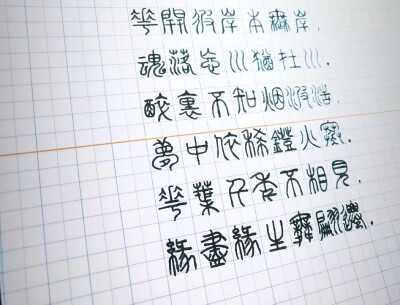 華開彼岸本無岸.
魂落忘川猶在川.
醉裏不知烟波浩.
夢中依稀鐙火寒.
華葉千年不相見.
緣盡緣生舞翩躚.